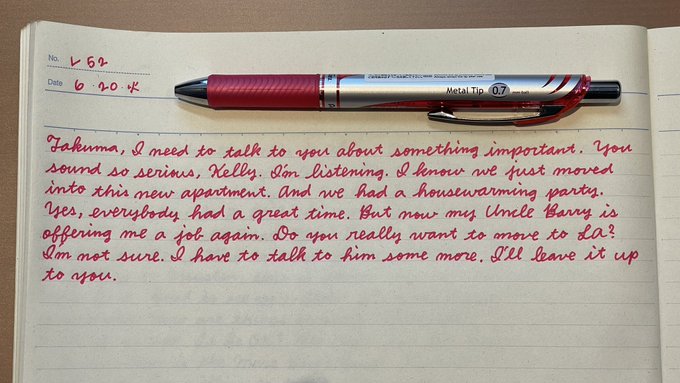 No. L 52
Date 6・20・水
Metal Tip 0.7
Takuma, I need to talk to you about something important. You
sound so serious, Kelly. I'm listening. I know we just moved
into this new apartment. And we had a housewarming party.
Yes, everybody had a great time. But now my Uncle Barry is
offering me a job again. Do you really want to move to LA?
I'm not sure. I have to talk to him some more. I'll leave it up
to you.